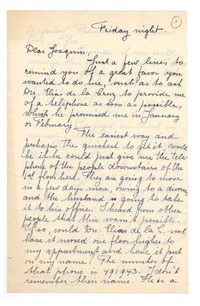 Friday night.
Dear Joaquin:
Just a few lines to
remind you of a great favor you
wanted to do me, such as to ask
Dr. Elias de la Cruz to provide me
of a telephone as soon as possible,
which he promised me in January
or February.
The easiest way and
perhaps the quickest to get it, would
be if he could just give me the tele-
phone of the people downstairs of the
1st floor here. They are going to move
in a few days more, owing to a divorce
and the husband is going to take
it to his office. I heard from other
people that this way is possible.
If so, could Dr. Elias de la C. not
have it moved one floor higher to
my appartment and hook it, put
to my name. The number of
that phone is 49943. I don't
remember their name. He is a